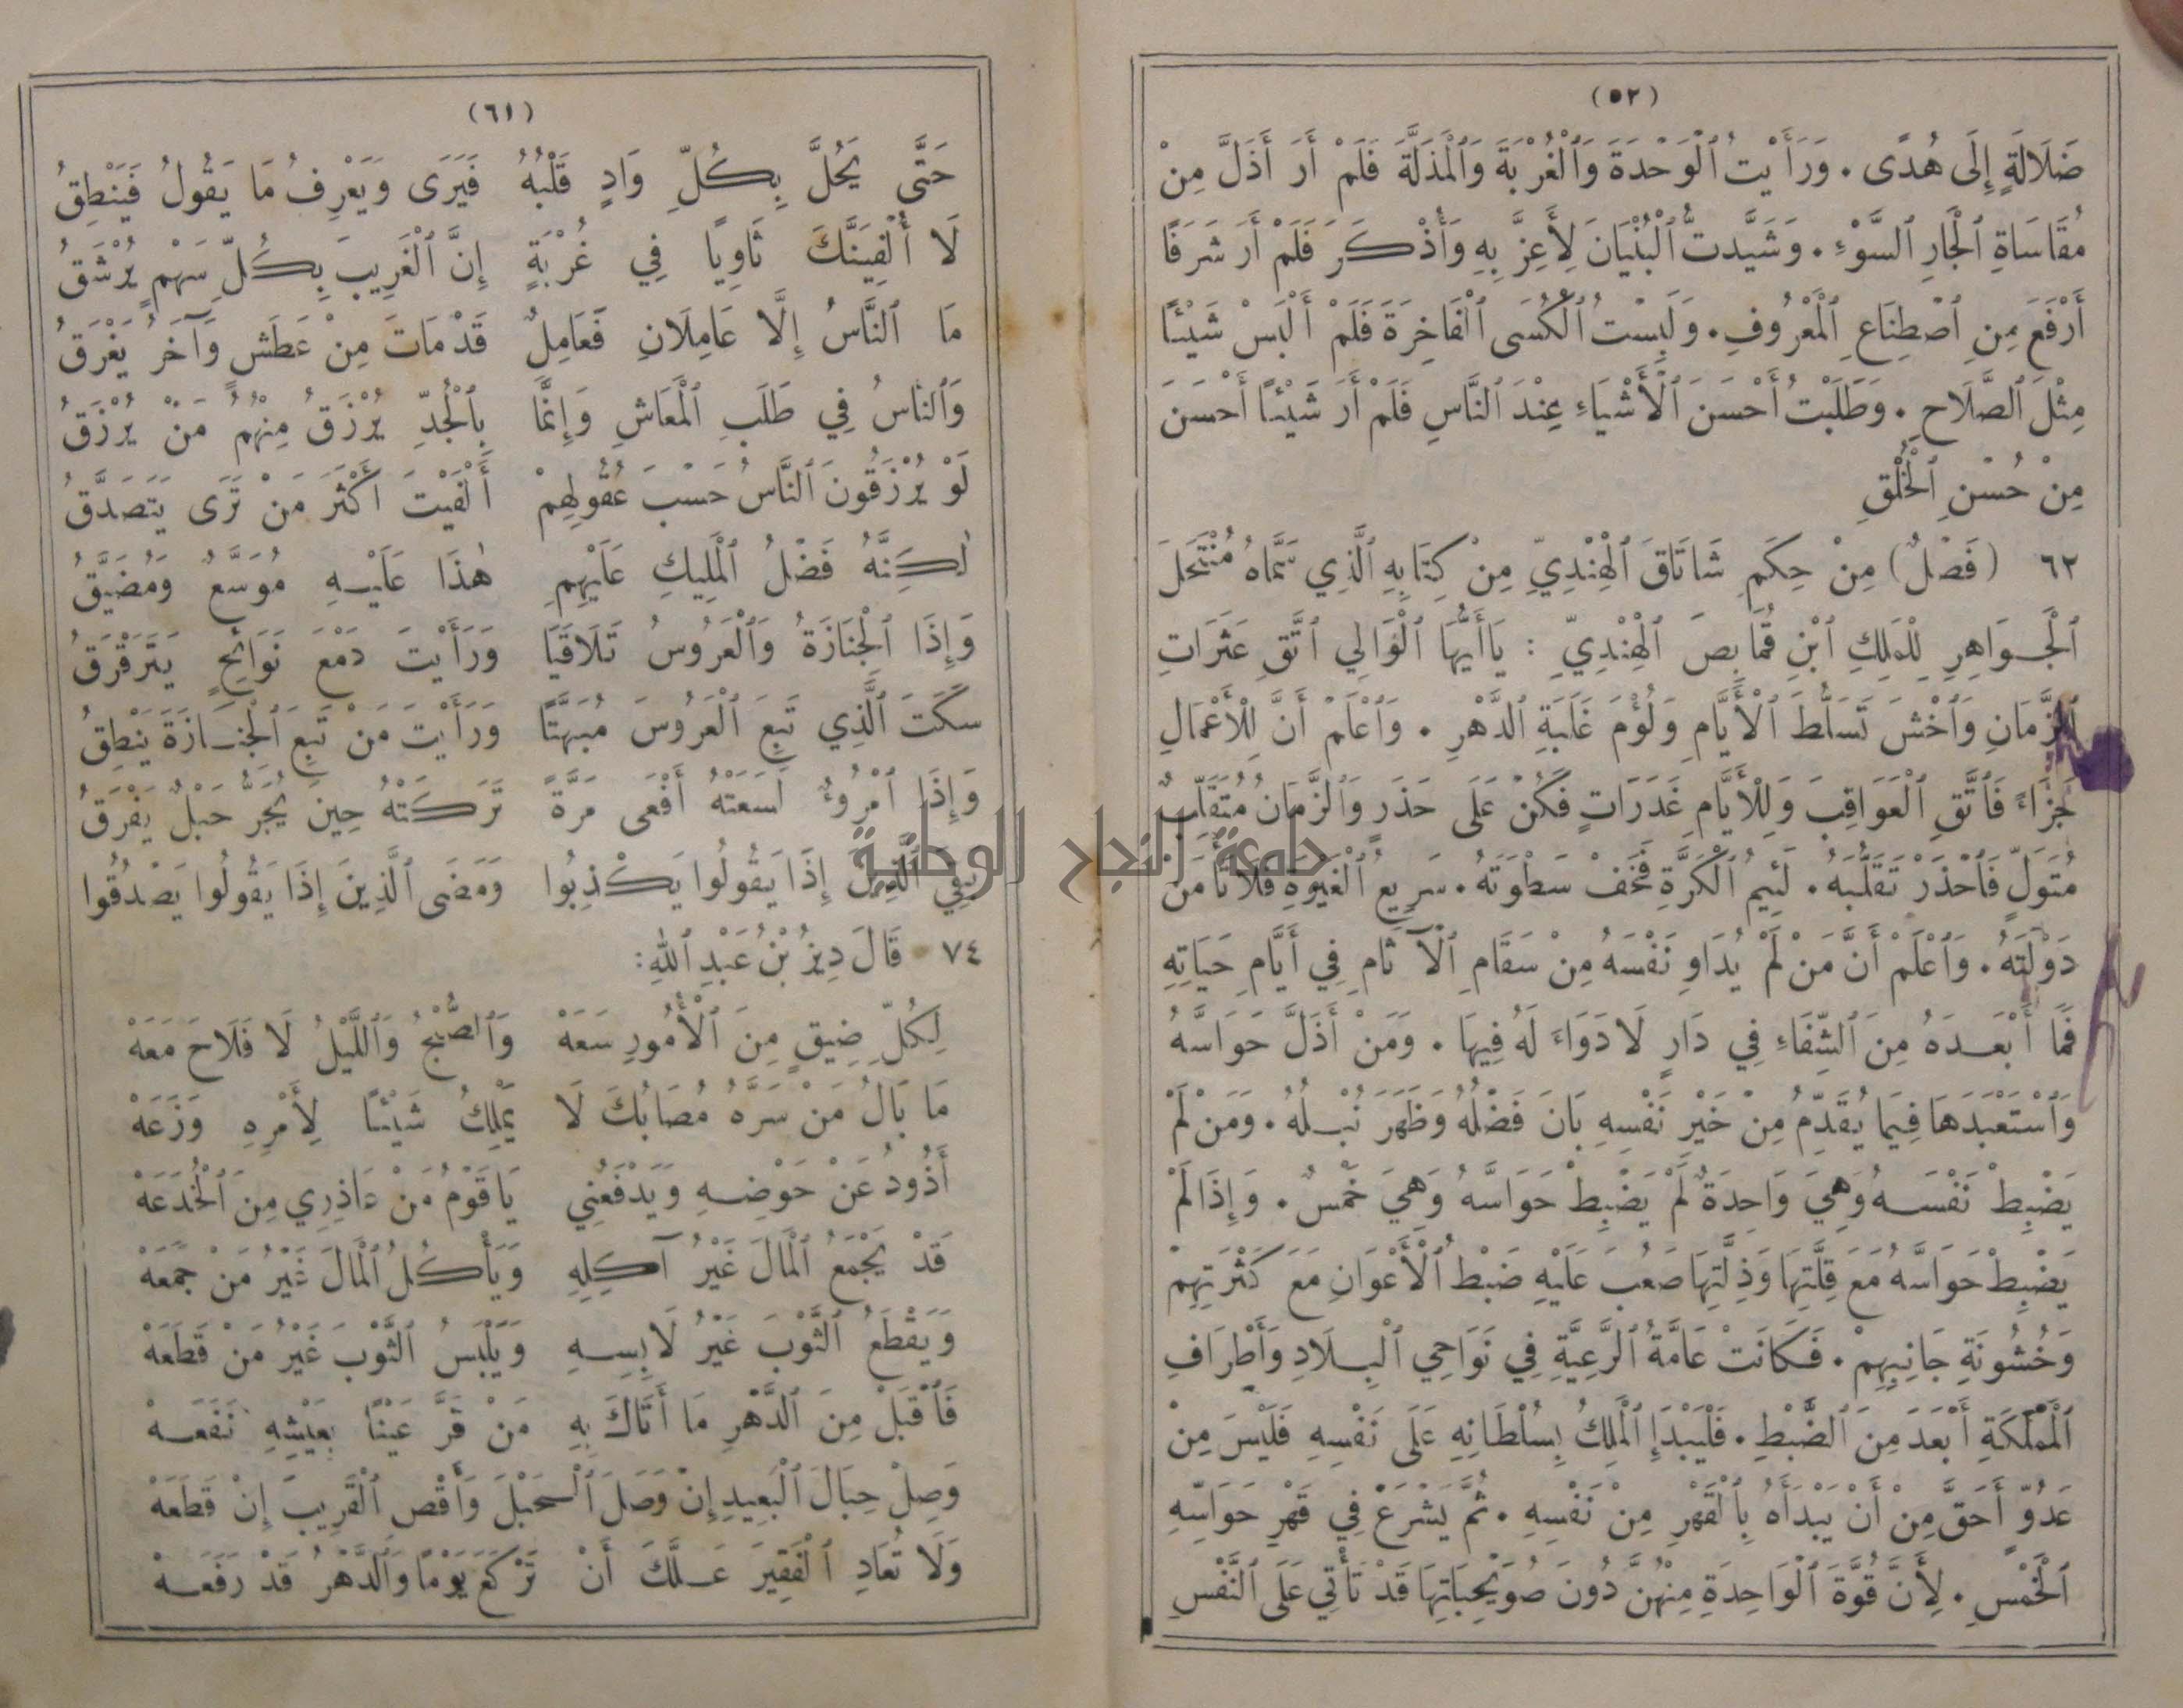 (٥٢)
ضَلَالَةٍ إِلَى هُدًى . وَرَأَيْتُ ٱلْوَحْدَةَ وَٱلْغُرْبَةَ وَٱلْمَذَلَّةَ فَلَمْ أَرَ أَذَلَّ مِنْ
مُقَاسَاةِ ٱلْجَارِ ٱلسَّوْءِ . وَشَيَّدتُّ ٱلْبُنْيَانَ لِأَعِزَّ بِهِ وَأُذْكَرَ فَلَمْ أَرَ شَرَفًا
أَرْفَعَ مِنِ ٱصْطِنَاعِ ٱلْمَعْرُوفِ . وَلَبِسْتُ ٱلْكُسَى ٱلْفَاخِرَةَ فَلَمْ أَلْبَسْ شَيْئًا
مِثْلَ ٱلصَّلَاحِ . وَطَلَبْتُ أَحْسَنَ ٱلْأَشْيَاءِ عِنْدَ ٱلنَّاسِ فَلَمْ أَرَ شَيْئًا أَحْسَنَ
مِنْ حُسْنِ ٱلْخُلْقِ
٦٢ (فَصْلٌ) مِنْ حِكَمِ شَانَاقَ ٱلْهِنْدِيِّ مِنْ كِتَابِهِ ٱلَّذِي سَمَّاهُ مُنْتَحَلَ
ٱلْجَوَاهِرِ لِلْمَلِكِ ٱبْنِ قُمَابِصَ ٱلْهِنْدِيِّ : يَا أَيُّهَا ٱلْوَالِي ٱتَّقِ عَثَرَاتِ
ٱلزَّمَانِ وَٱخْشَ تَسَلُّطَ ٱلْأَيَّامِ وَلُؤْمَ غَلَبَةِ ٱلدَّهْرِ . وَٱعْلَمْ أَنَّ لِلْأَعْمَالِ
جَزَاءً فَٱتَّقِ ٱلْعَوَاقِبَ وَلِلْأَيَّامِ غَدَرَاتٍ فَكُنْ عَلَى حَذَرٍ وَٱلزَّمَانُ مُتَقَلِّبٌ
مُتَوَلٍّ فَٱحْذَرْ تَقَلُّبَهُ . لَئِيمُ ٱلْكَرَّةِ فَخَفْ سَطْوَتَهُ . سَرِيعُ ٱلْغِيْرَةِ فَلَا تَأْمَنْ
دَوْلَتَهُ . وَٱعْلَمْ أَنَّ مَنْ لَمْ يُدَاوِ نَفْسَهُ مِنْ سَقَامِ ٱلْآثَامِ فِي أَيَّامِ حَيَاتِهِ
فَمَا أَبْعَدَهُ مِنَ ٱلشِّفَاءِ فِي دَارٍ لَا دَوَاءَ لَهُ فِيهَا . وَمَنْ أَذَلَّ حَوَاسَّهُ
وَٱسْتَعْبَدَهَا فِيمَا يُقَدِّمُ مِنْ خَيْرِ نَفْسِهِ بَانَ فَضْلُهُ وَظَهَرَ نُبْلُهُ . وَمَنْ لَمْ
يَضْبِطْ نَفْسَهُ وَهِيَ وَاحِدَةٌ لَمْ يَضْبِطْ حَوَاسَّهُ وَهِيَ خَمْسٌ . وَإِذَا لَمْ
يَضْبِطْ حَوَاسَّهُ مَعَ قِلَّتِهَا وَذِلَّتِهَا صَعُبَ عَلَيْهِ ضَبْطُ ٱلْأَعْوَانِ مَعَ كَثْرَتِهِمْ
وَخُشُونَةِ جَانِبِهِمْ . فَكَانَتْ عَامَّةُ ٱلرَّعِيَّةِ فِي نَوَاحِي ٱلْبِلَادِ وَأَطْرَافِ
ٱلْمَمْلَكَةِ أَبْعَدَ مِنَ ٱلضَّبْطِ . فَلْيَبْدَإِ ٱلْمَلِكُ بِسُلْطَانِهِ عَلَى نَفْسِهِ فَلَيْسَ مِنْ
عَدُوٍّ أَحَقَّ مِنْ أَنْ يَبْدَأَهُ بِٱلْقَهْرِ مِنْ نَفْسِهِ . ثُمَّ يَشْرَعْ فِي قَهْرِ حَوَاسِّهِ
ٱلْخَمْسِ . لِأَنَّ قُوَّةَ ٱلْوَاحِدَةِ مِنْهُنَّ دُونَ صُوَيْحِبَاتِهَا قَدْ تَأْتِي عَلَى ٱلنَّفْسِ
(٦١)
حَتَّى يَحُلَّ بِكُلِّ وَادٍ قَلْبُهُ فَيَرَى وَيَعْرِفُ مَا يَقُولُ فَيَنْطِقُ
لَا أُلْفِيَنَّكَ ثَاوِيًا فِي غُرْبَةٍ إِنَّ ٱلْغَرِيبَ بِكُلِّ سَهْمٍ يُرْشَقُ
مَا ٱلنَّاسُ إِلَّا عَامِلَانِ فَعَامِلٌ قَدْ مَاتَ مِنْ عَطَشٍ وَآخَرُ يَغْرَقُ
وَٱلنَّاسُ فِي طَلَبِ ٱلْمَعَاشِ وَإِنَّمَا بِٱلْجَدِّ يُرْزَقُ مِنْهُمُ مَنْ يُرْزَقُ
لَوْ يُرْزَقُونَ ٱلنَّاسُ حَسْبَ عُقُولِهِمْ أَلْفَيْتَ أَكْثَرَ مَنْ تَرَى يَتَصَدَّقُ
لٰكِنَّهُ فَضْلُ ٱلْمَلِيكِ عَلَيْهِمِ هٰذَا عَلَيْهِ مُوَسَّعٌ وَمُضَيَّقُ
وَإِذَا ٱلْجِنَازَةُ وَٱلْعَرُوسُ تَلَاقَيَا وَرَأَيْتَ دَمْعَ نَوَائِحٍ يَتَرَقْرَقُ
سَكَتَ ٱلَّذِي تَبِعَ ٱلْعَرُوسَ مُبَهَّتًا وَرَأَيْتَ مَنْ تَبِعَ ٱلْجِنَازَةَ يَنْطِقُ
وَإِذَا ٱمْرُؤٌ لَسَعَتْهُ أَفْعَى مَرَّةً تَرَكَتْهُ حِينَ يُجَرُّ حَبْلٌ يَفْرَقُ
بَقِيَ ٱلَّذِينَ إِذَا يَقُولُوا يَكْذِبُوا وَمَضَى ٱلَّذِينَ إِذَا يَقُولُوا يَصْدُقُوا
٧٤ قَالَ دِيزُ بْنُ عَبْدِ ٱللهِ:
لِكُلِّ ضِيقٍ مِنَ ٱلْأُمُورِ سَعَهْ وَٱلصُّبْحُ وَٱللَّيْلُ لَا فَلَاحَ مَعَهْ
مَا بَالُ مَنْ سَرَّهُ مُصَابُكَ لَا يَمْلِكُ شَيْئًا لِأَمْرِهِ وَزَعَهْ
أَذُودُ عَنْ حَوْضِهِ وَيَدْفَعُنِي يَا قَوْمُ مَنْ عَاذِرِي مِنَ ٱلْخُدَعَهْ
قَدْ يَجْمَعُ ٱلْمَالَ غَيْرُ آكِلِهِ وَيَأْكُلُ ٱلْمَالَ غَيْرُ مَنْ جَمَعَهْ
وَيَقْطَعُ ٱلثَّوْبَ غَيْرُ لَابِسِهِ وَيَلْبَسُ ٱلثَّوْبَ غَيْرُ مَنْ قَطَعَهْ
فَٱقْبَلْ مِنَ ٱلدَّهْرِ مَا أَتَاكَ بِهِ مَنْ قَرَّ عَيْنًا بِعَيْشِهِ نَفَعَهْ
وَصِلْ حِبَالَ ٱلْبَعِيدِ إِنْ وَصَلَ ٱلْحَبْلَ وَأَقْصِ ٱلْقَرِيبَ إِنْ قَطَعَهْ
وَلَا تُعَادِ ٱلْفَقِيرَ عَلَّكَ أَنْ تَرْكَعَ يَوْمًا وَٱلدَّهْرُ قَدْ رَفَعَهْ
جامعة النجاح الوطنية